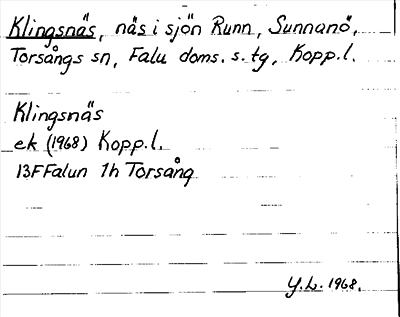 Klingsnäs, näs i sjön Runn, Sunnanö,
Torsångs sn, Falu doms. s. tg, Kopp.l.
Klingsnäs
ek (1968) Kopp.l.
13F Falun 1h Torsång
Y.L. 1968.